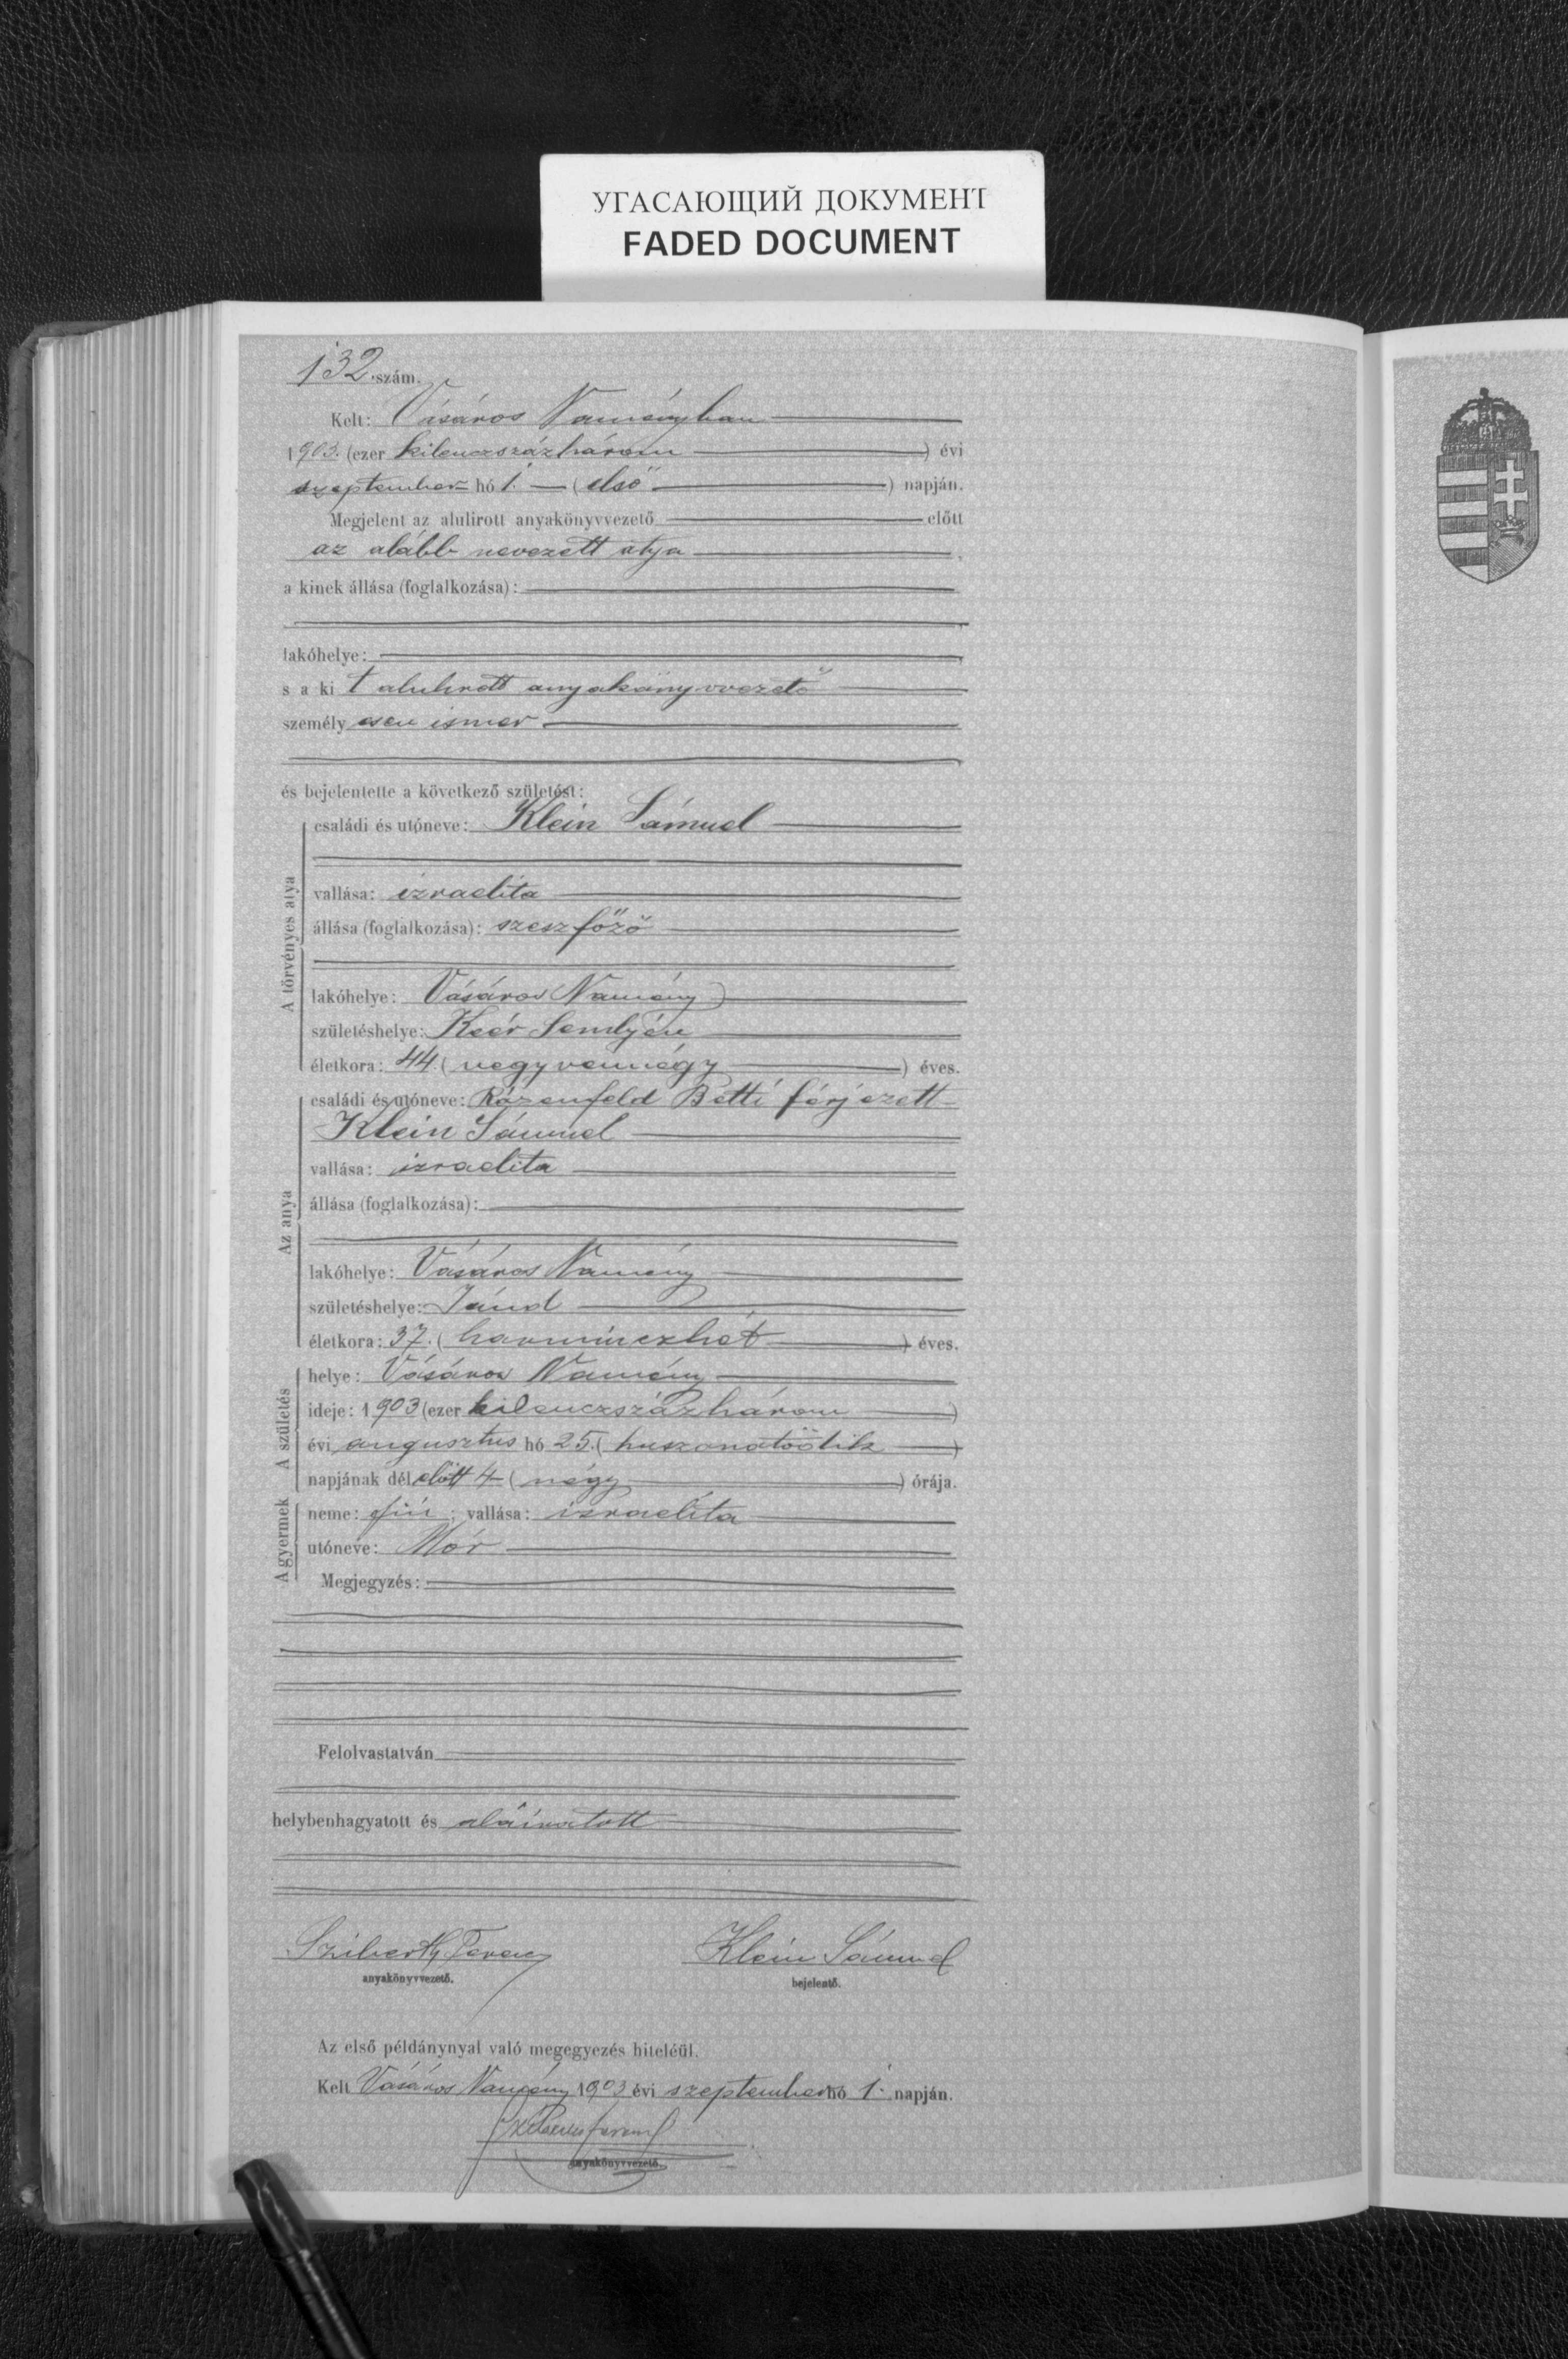 УГАСАЮЩИЙ ДОКУМЕНТ
FADED DOCUMENT
132 szám.
Kelt: Vásáros Naményban
1903. (ezer kilenczszázhárom ) évi
szeptember hó 1. (első ) napján.
Megjelent az alulirott anyakönyvvezető előtt
az alább nevezett atya
a kinek állása (foglalkozása):
lakóhelye:
s a ki t alulirott anyakönyvvezető
személy esen ismer
és bejelentette a következő születést:
A törvényes atya
családi és utóneve: Klein Sámuel
vallása: izraelita
állása (foglalkozása): szeszfőző
lakóhelye: Vásáros Namény
születéshelye: Keér Semlyén
életkora: 44 (negyvennégy ) éves.
Az anya
családi és utóneve: Rózenfeld Betti férjezett
Klein Sámuel
vallása: izraelita
állása (foglalkozása):
lakóhelye: Vásáros Namény
születéshelye: Jánd
életkora: 37. (harminczhét ) éves.
A születés
helye: Vásáros Namény
ideje: 1903 (ezer kilenczszázhárom )
évi augusztus hó 25. (huszonötödik )
napjának dél előtt 4 (négy ) órája.
A gyermek
neme: fiú; vallása: izraelita
utóneve: Mór
Megjegyzés:
Felolvastatván
helybenhagyatott és aláiratott
Ferencz Klein Sámuel
anyakönyvvezető. bejelentő.
Az első példánynyal való megegyezés hiteléül.
Kelt Vásáros Namény 1903 évi szeptember hó 1. napján.
anyakönyvvezető.